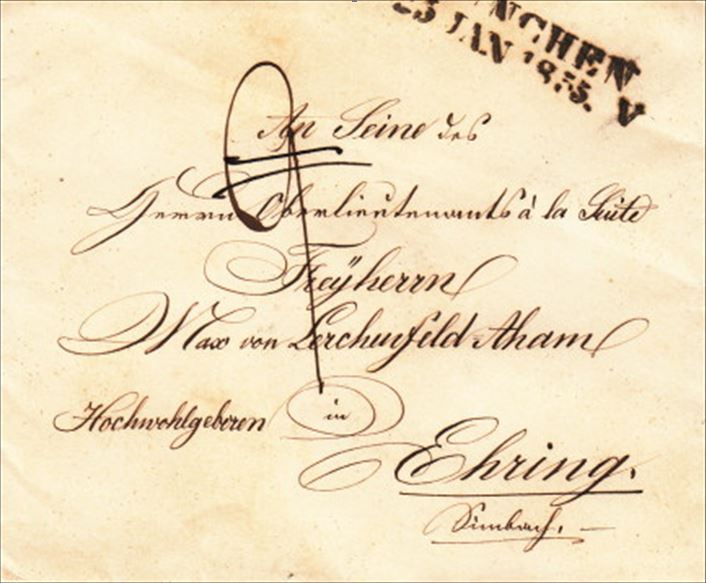 MÜNCHEN V
23 JAN 1855.
An Seine des
Herrn Oberlieutenants à la Suite
Freÿherrn
Max von Lerchenfeld-Aham
Hochwohlgeboren in
Ehring.
Simbach. –